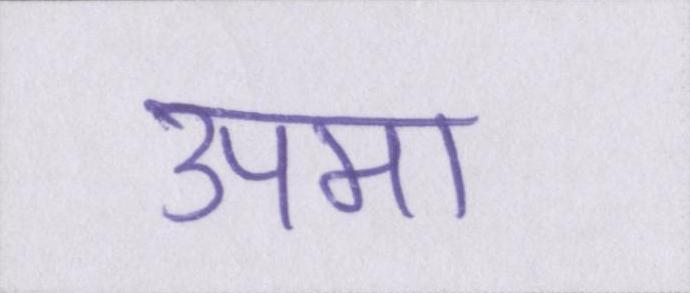 उपमा